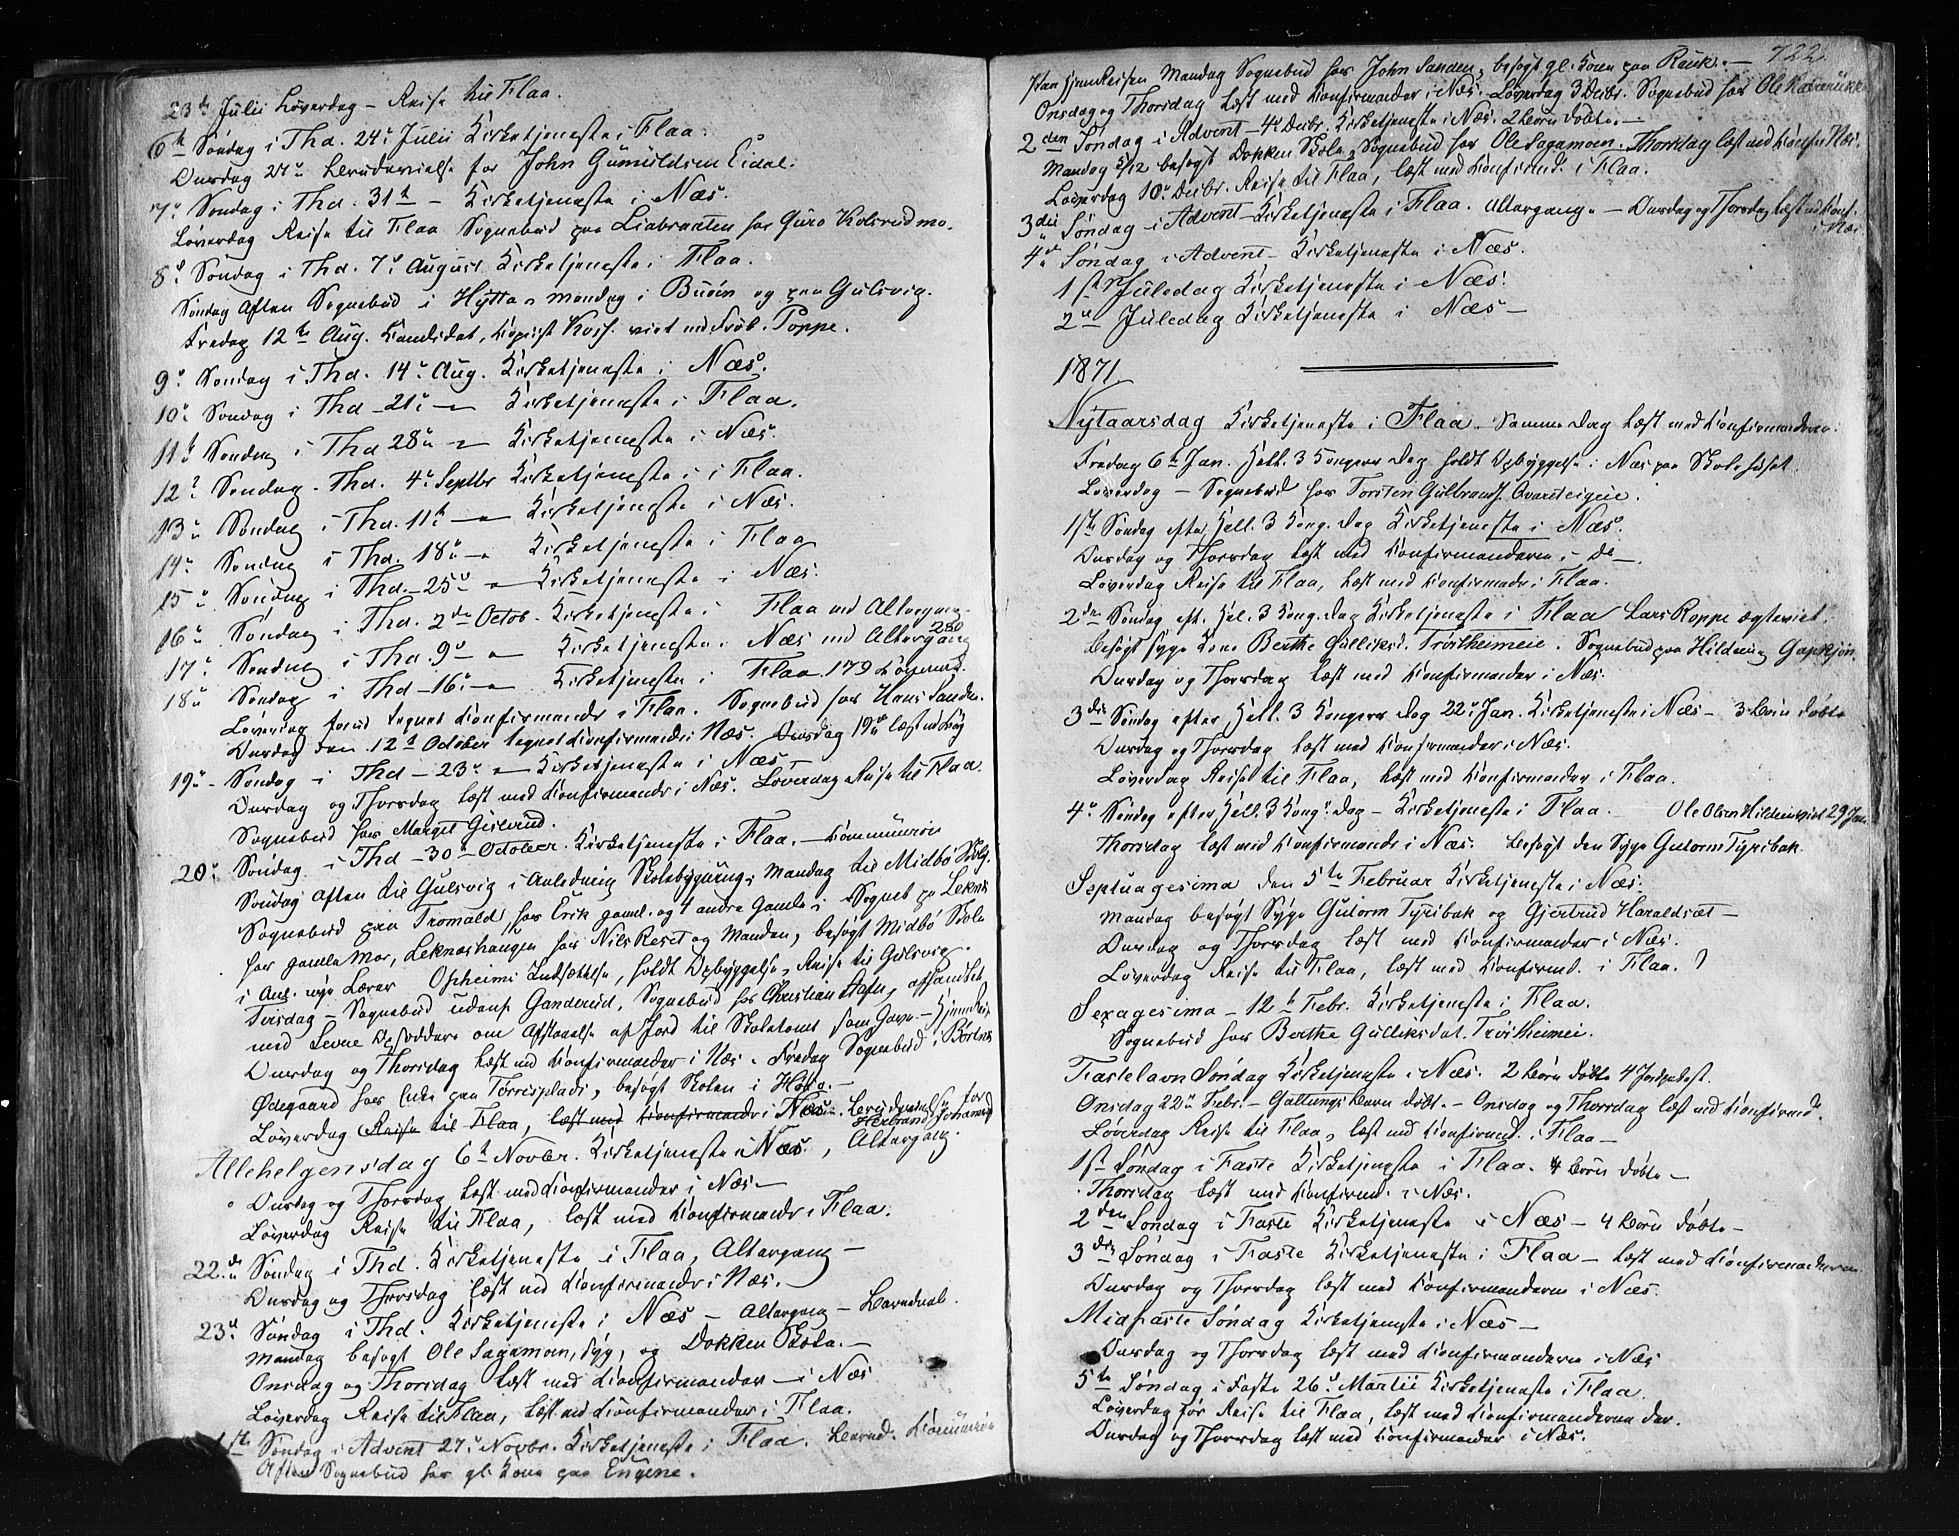 23de Julii Løverdag – Reise til Flaa.
6te Søndag i Thd. 24de Julii Kirketjeneste i Flaa.
Onsdag 27de for John Gunuldsen Eidal.
7de Søndag i Thd. 31te – Kirketjeneste i Næs.
Løverdag Reise til Flaa Sognebud paa Liabraaten hos Guro Kolsrudmo.
8de Søndag i Thd. 7de August Kirketjeneste i Flaa.
Søndag Aften Sognebud i Hytta, Mandag i Buøin og paa Gulsvig.
Fredag 12te Aug. Candidat, viet med Frøk. Poppe.
9de Søndag i Thd. 14de Aug. Kirketjeneste i Næs.
10de Søndag i Thd – 21de – Kirketjeneste i Flaa.
11te Søndag i Thd 28de – Kirketjeneste i Næs.
12te Søndag – Thd. 4de Septbr Kirketjeneste i i Flaa.
13de Søndag i Thd. 11te – Kirketjeneste i Næs.
14de Søndag i Thd. 18de – Kirketjeneste i Flaa
15de Søndag i Thd. – 25de – Kirketjeneste i Næs.
16de Søndag i Thd. 2den Octob. Kirketjeneste i Flaa med Altergang.
17de Søndag i Thd. 9de – Kirketjeneste i Næs med Altergang 280
18de Søndag i Thd – 16de – Kirketjeneste i Flaa. 179
Løverdag forud tegnet Konfirmander i Flaa. Sognebud hos Hans Sanden.
Onsdag den 12te October tegnet Konfirmander i Næs. Onsdag 19de læst med
19de – Søndag i Thd – 23de – Kirketjeneste i Næs –
Onsdag og Thorsdag læst med Konfirmander i Næs. Løverdag Reise til Flaa.
Sognebud hos Margit Gislerud.
20de Søndag i Thd – 30te October. Kirketjeneste i Flaa. – Kommunion
Søndag Aften til Gulsvig i Anledning Skolebygning, Mandag til Midbø Skole.
Sognebud paa Tromald hos Erik gaml. og 4 andre Gamle i Sognet paa Leknes
hos gamle Mor, Lekneshaugen hos Nils Reset og Manden, besøgt Midbø Skole
i Anl. nye Lærer Opheims Indsættelse, holdt Opbyggelse, Reise til Gulsvig.
Tirsdag – Sognebud udenf. Ganderud, Sognebud hos Christian Hafn, afhandlet
med Levor om Afstaaelse af Jord til Skoletomt som Gave –
Onsdag og Thorsdag læst med Konfirmander i Næs. Fredag Sognebud i Børtnes
Ødegaard hos Enke paa Tørrisplads, besøgt Skolen i Høva. –
Løverdag Reise til Flaa, læst med Konfirmander i Næs. for Herbrand Johannes
Allehelgensdag 6te Novbr. Kirketjeneste i Næs, Altergang.
Onsdag og Thorsdag læst med Konfirmander i Næs –
Løverdag Reise til Flaa, læst med Konfirmander i Flaa.
22de Søndag i Thd. Kirketjeneste i Flaa, Altergang –
Onsdag og Thorsdag læst med Konfirmander i Næs. –
23de Søndag i Thd. Kirketjeneste i Næs – Altergang – Barnedaab.
Mandag besøgt Ole Sagamoen, syg, og Dokken Skole. –
Onsdag og Thorsdag læst med Konfirmander – i Næs
Løverdag Reise til Flaa, læst med Konfirmander i Flaa.
1ste Søndag i Advent 27de Novbr. Kirketjeneste i Flaa. Barned. Kommunion
Aften Sognebud hos gl. Kone paa Engene.
722
Paa Hjemreisen Mandag Sognebud hos John Sanden, besøgt gl. Konen paa Rauk. –
Onsdag og Thorsdag læst med Konfirmander i Næs. Løverdag 3 Decbr. Sognebud hos Ole
2den Søndag i Advent – 4de Decbr. Kirketjeneste i Næs. 2 Børn døbte. –
Mandag 5/12 besøgt Dokken Skole, Sognebud hos Ole Sagamoen. Thorsdag læst med Konf. i Næs.
Løverdag 10de Decbr. Reise til Flaa, læst med Konfirmd. i Flaa.
3die Søndag i Advent – Kirketjeneste i Flaa. Altergang. – Onsdag og Thorsdag læst med Konf. i Næs
4de Søndag i Advent – Kirketjeneste i Næs.
1ste Juledag Kirketjeneste i Næs.
2den Juledag Kirketjeneste i Næs –
1871
Nytaarsdag Kirketjeneste i Flaa. Samme Dag læst med Konfirmanderne.
Fredag 6te Jan. Hell. 3 Kongers Dag holdt Opbyggelse i Næs paa Skolehuset.
Løverdag – Sognebud hos Torsten Gulbrands. Qvarsteigeie.
1ste Søndag efter Hell. 3 Kong. Dag Kirketjeneste i Næs.
Onsdag og Thorsdag læst med Konfirmanderne i do –
Løverdag Reise til Flaa, læst med Konfirmander i Flaa.
2den Søndag eft. Hel. 3 Kong. Dag Kirketjeneste i Flaa Lars Roppe ægteviet.
Besøgt syge Kone Berthe Gulliksd. Trøstheimeie. Sognebud paa Hildening
Onsdag og Thorsdag læst med Konfirmander i Næs.
3die Søndag efter Hell. 3 Kongers Dag 22de Jan. Kirketjeneste i Næs – 3 Børn døbte
Onsdag og Thorsdag læst med Konfirmander i Næs.
Løverdag Reise til Flaa, læst med Konfirmander i Flaa.
4de Søndag efter Hell. 3 Kong. Dag – Kirketjeneste i Flaa. Ole Olsen Hilden viet 29 Jan.
Thorsdag læst med Konfirmander i Næs. Besøgt den Syge Gutorm Tyribak.
Septuagesima den 5te Februar Kirketjeneste i Næs.
Mandag besøgt Syge Gutorm Tyribak og Gjertrud Haraldsæt –
Onsdag og Thorsdag læst med Konfirmander i Næs.
Løverdag Reise til Flaa, læst med Konfirmd. i Flaa.
Sexagesima – 12te Febr. Kirketjeneste i Flaa.
Sognebud hos Berthe Gulliksdat. Trøstheimei.
Fastelavn Søndag Kirketjeneste i Næs. 2 Børn døbte 4 Jordpakast.
Onsdag 22de Febr. – Galtungs Barn døbt. – Onsdag og Thorsdag læst med Konfirmd.
Løverdag Reise til Flaa, læst med Konfirmd. i Flaa –
1ste Søndag i Faste Kirketjeneste i Flaa. 4 Børn døbte –
Thorsdag læst med Konfirmd. i Næs.
2den Søndag i Faste Kirketjeneste i Næs – 4 Børn døbte –
3die Søndag i Faste Kirketjeneste i Flaa – læst med Konfirmanderne
Onsdag og Thorsdag læst med Konfirmanderne i Næs.
Midfaste Søndag Kirketjeneste i Næs –
Onsdag og Thorsdag læst med Konfirmanderne i Næs
5te Søndag i Faste 26de Martii Kirketjeneste i Flaa.
Løverdag før Reise til Flaa, læst med Konfirmanderne der.
Onsdag og Thorsdag læst med Konfirmander i Næs.